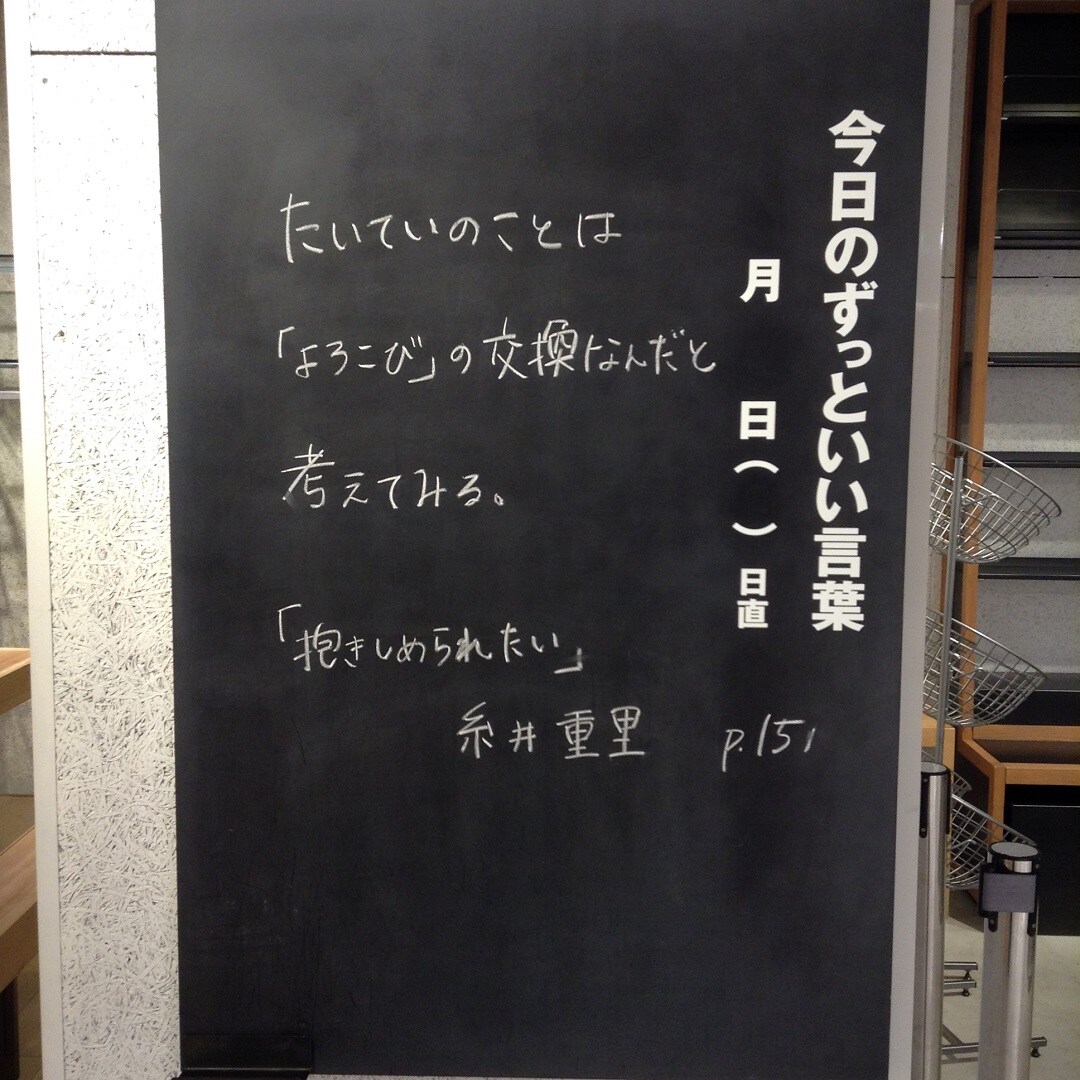 今日のずっといい言葉
月 日( ) 日直
たいていのことは
「よろこび」の交換なんだと
考えてみる。
「抱きしめられたい」
糸井重里 p.151